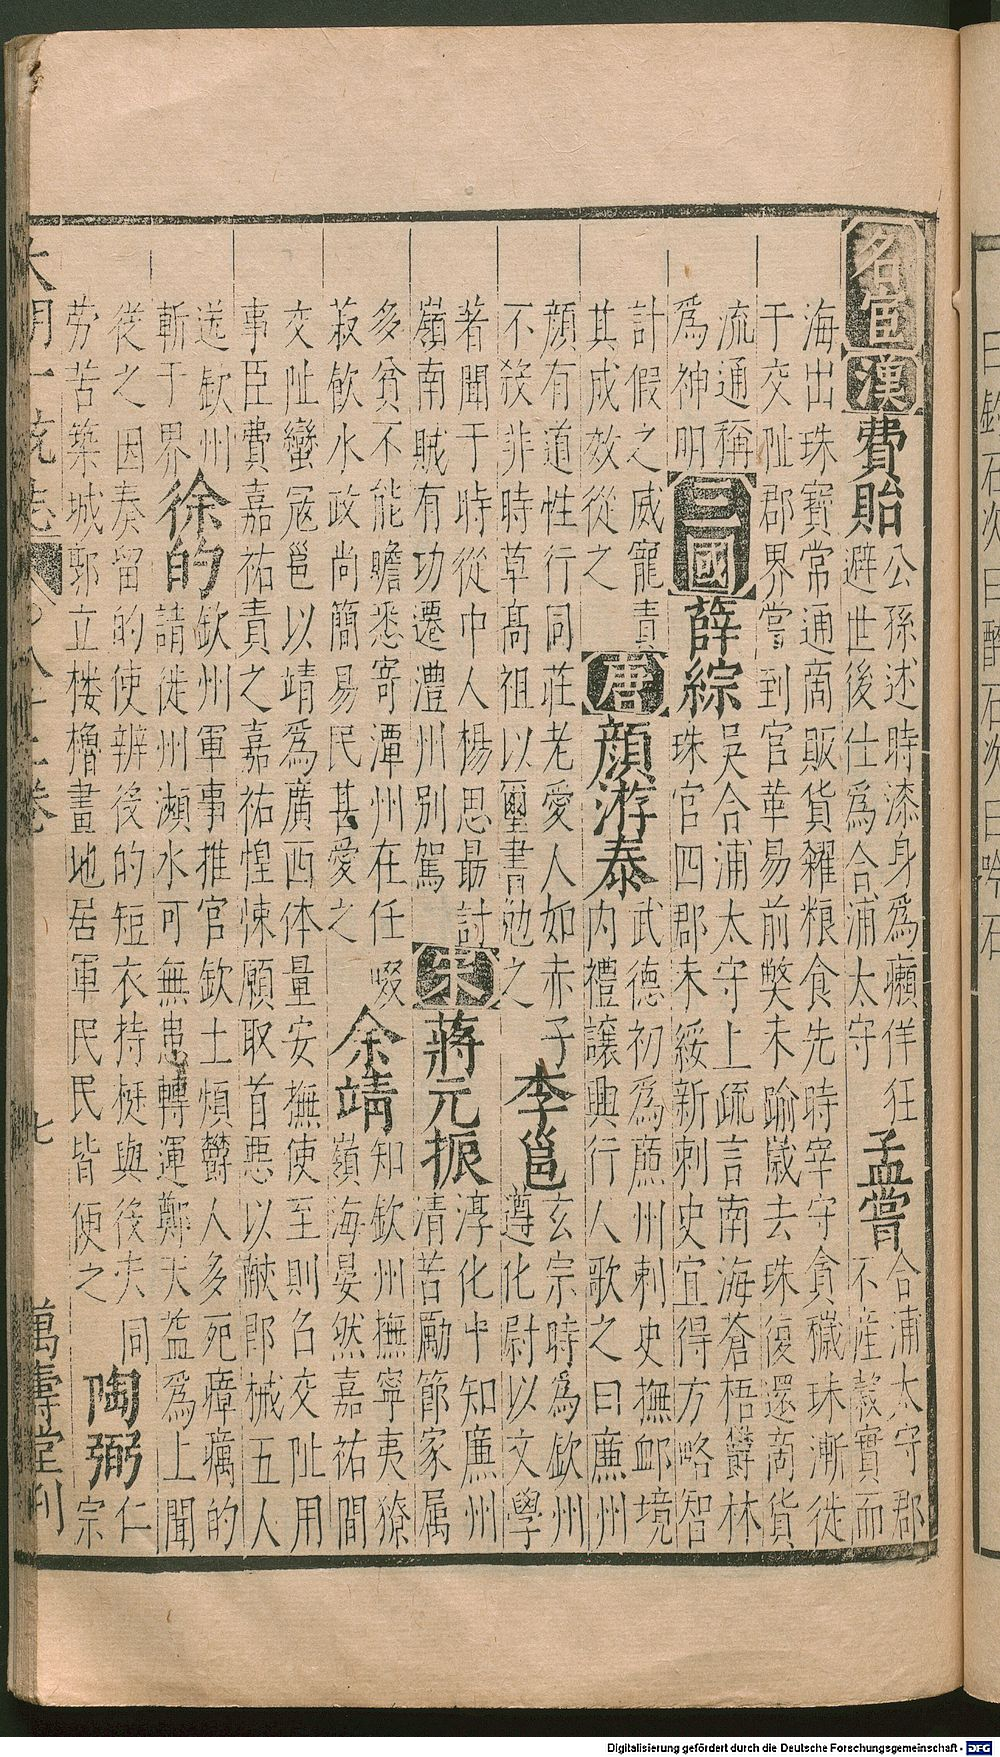 名宦 漢 費貽 公孫述時漆身為癩佯狂
避世後仕為合浦太守 孟嘗 合浦太守郡
不産穀實而
海出珠寶常通商販貨糴粮食先時宰守貪穢珠漸徙
于交阯郡界嘗到官革易前弊未踰歲去珠復還商貨
流通稱
為神明 三國 薛綜 吳合浦太守上疏言南海蒼梧欝林
珠官四郡未綏新刺史宜得方略智
計假之威寵責
其成效從之 唐 顔游泰 武德初為廉州刺史撫䘏境
内禮讓興行人歌之曰廉州
顔有道性行同莊老愛人如赤子
不殺非時草高祖以璽書勉之 李邕 玄宗時為欽州
遵化尉以文學
著聞于時從中人楊思勗討
嶺南賊有功遷澧州别駕 宋 蔣元振 淳化中知廉州
清苦勵節家属
多貧不能贍悉寄潭州在任啜
菽飲水政尚簡易民甚愛之 余靖 知欽州撫寧夷獠
嶺海晏然嘉祐間
交阯蠻寇邕以靖為廣西体量安撫使至則召交阯用
事臣費嘉祐責之嘉祐惶悚願取首惡以献郎械五人
送欽州
斬于界 徐的 欽州軍事推官欽土煩欝人多死瘴癘的
請徙州瀕水可無患轉運鄭天監為上聞
從之因奏留的使辨役的短衣持梃與役夫同
勞苦築城郭立楼櫓畫地居軍民民皆便之 陶弼 仁
宗
大明一統志 八十二卷 七 萬壽堂刊
Digitalisierung gefördert durch die Deutsche Forschungsgemeinschaft - DFG